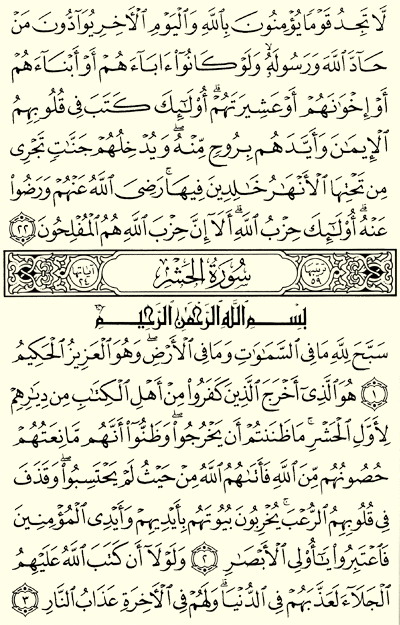 لَّا تَجِدُ قَوْمًا يُؤْمِنُونَ بِٱللَّهِ وَٱلْيَوْمِ ٱلْأَخِرِ يُوَآدُّونَ مَنْ
حَآدَّ ٱللَّهَ وَرَسُولَهُۥ وَلَوْ كَانُوٓا۟ ءَابَآءَهُمْ أَوْ أَبْنَآءَهُمْ
أَوْ إِخْوَٰنَهُمْ أَوْ عَشِيرَتَهُمْ ۚ أُو۟لَٰٓئِكَ كَتَبَ فِى قُلُوبِهِمُ
ٱلْإِيمَٰنَ وَأَيَّدَهُم بِرُوحٍ مِّنْهُ ۖ وَيُدْخِلُهُمْ جَنَّٰتٍ تَجْرِى
مِن تَحْتِهَا ٱلْأَنْهَٰرُ خَٰلِدِينَ فِيهَا ۚ رَضِىَ ٱللَّهُ عَنْهُمْ وَرَضُوا۟
عَنْهُ ۚ أُو۟لَٰٓئِكَ حِزْبُ ٱللَّهِ ۚ أَلَآ إِنَّ حِزْبَ ٱللَّهِ هُمُ ٱلْمُفْلِحُونَ ٢٢
ترتيبها ٥٩ سُورَةُ الحَشْرِ آياتها ٢٤
بِسْمِ ٱللَّهِ ٱلرَّحْمَٰنِ ٱلرَّحِيمِ
سَبَّحَ لِلَّهِ مَا فِى ٱلسَّمَٰوَٰتِ وَمَا فِى ٱلْأَرْضِ ۖ وَهُوَ ٱلْعَزِيزُ ٱلْحَكِيمُ
١ هُوَ ٱلَّذِىٓ أَخْرَجَ ٱلَّذِينَ كَفَرُوا۟ مِنْ أَهْلِ ٱلْكِتَٰبِ مِن دِيَٰرِهِمْ
لِأَوَّلِ ٱلْحَشْرِ ۚ مَا ظَنَنتُمْ أَن يَخْرُجُوا۟ ۖ وَظَنُّوٓا۟ أَنَّهُم مَّانِعَتُهُمْ
حُصُونُهُم مِّنَ ٱللَّهِ فَأَتَىٰهُمُ ٱللَّهُ مِنْ حَيْثُ لَمْ يَحْتَسِبُوا۟ ۖ وَقَذَفَ
فِى قُلُوبِهِمُ ٱلرُّعْبَ ۚ يُخْرِبُونَ بُيُوتَهُم بِأَيْدِيهِمْ وَأَيْدِى ٱلْمُؤْمِنِينَ
فَٱعْتَبِرُوا۟ يَٰٓأُو۟لِى ٱلْأَبْصَٰرِ ٢ وَلَوْلَآ أَن كَتَبَ ٱللَّهُ عَلَيْهِمُ
ٱلْجَلَآءَ لَعَذَّبَهُمْ فِى ٱلدُّنْيَا ۖ وَلَهُمْ فِى ٱلْأَخِرَةِ عَذَابُ ٱلنَّارِ ٣